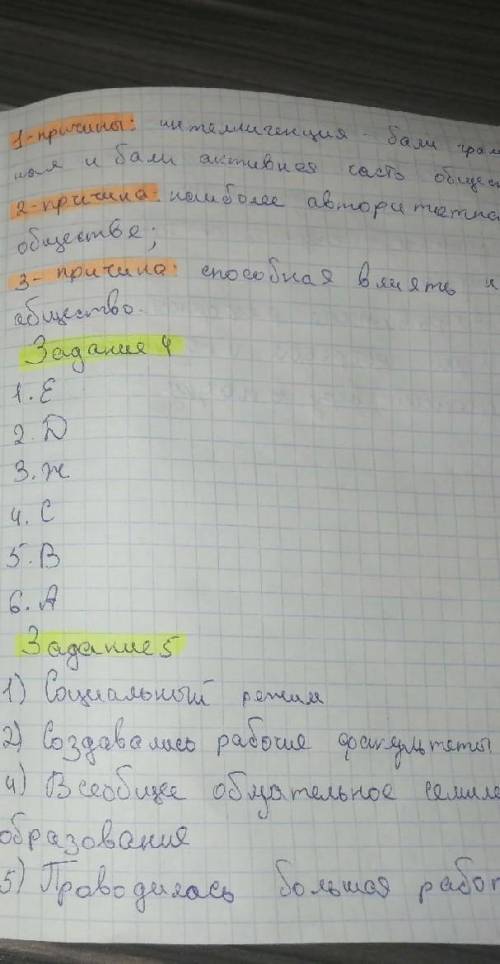 1-причины: интеллигенция - бали грам
ная и бали активная часть общес
2-причина: наиболее авторитетна
обществе;
3- причина: способная влиять н
общество.
Задание 4
1. Е
2. Д
3. ж
4. С
5. В
6. А
Задание 5
1) Социальный режим
2) Создавались рабочие факультеты
4) Всеобщее обязательное семиле
образования
5) Проводилась большая работ